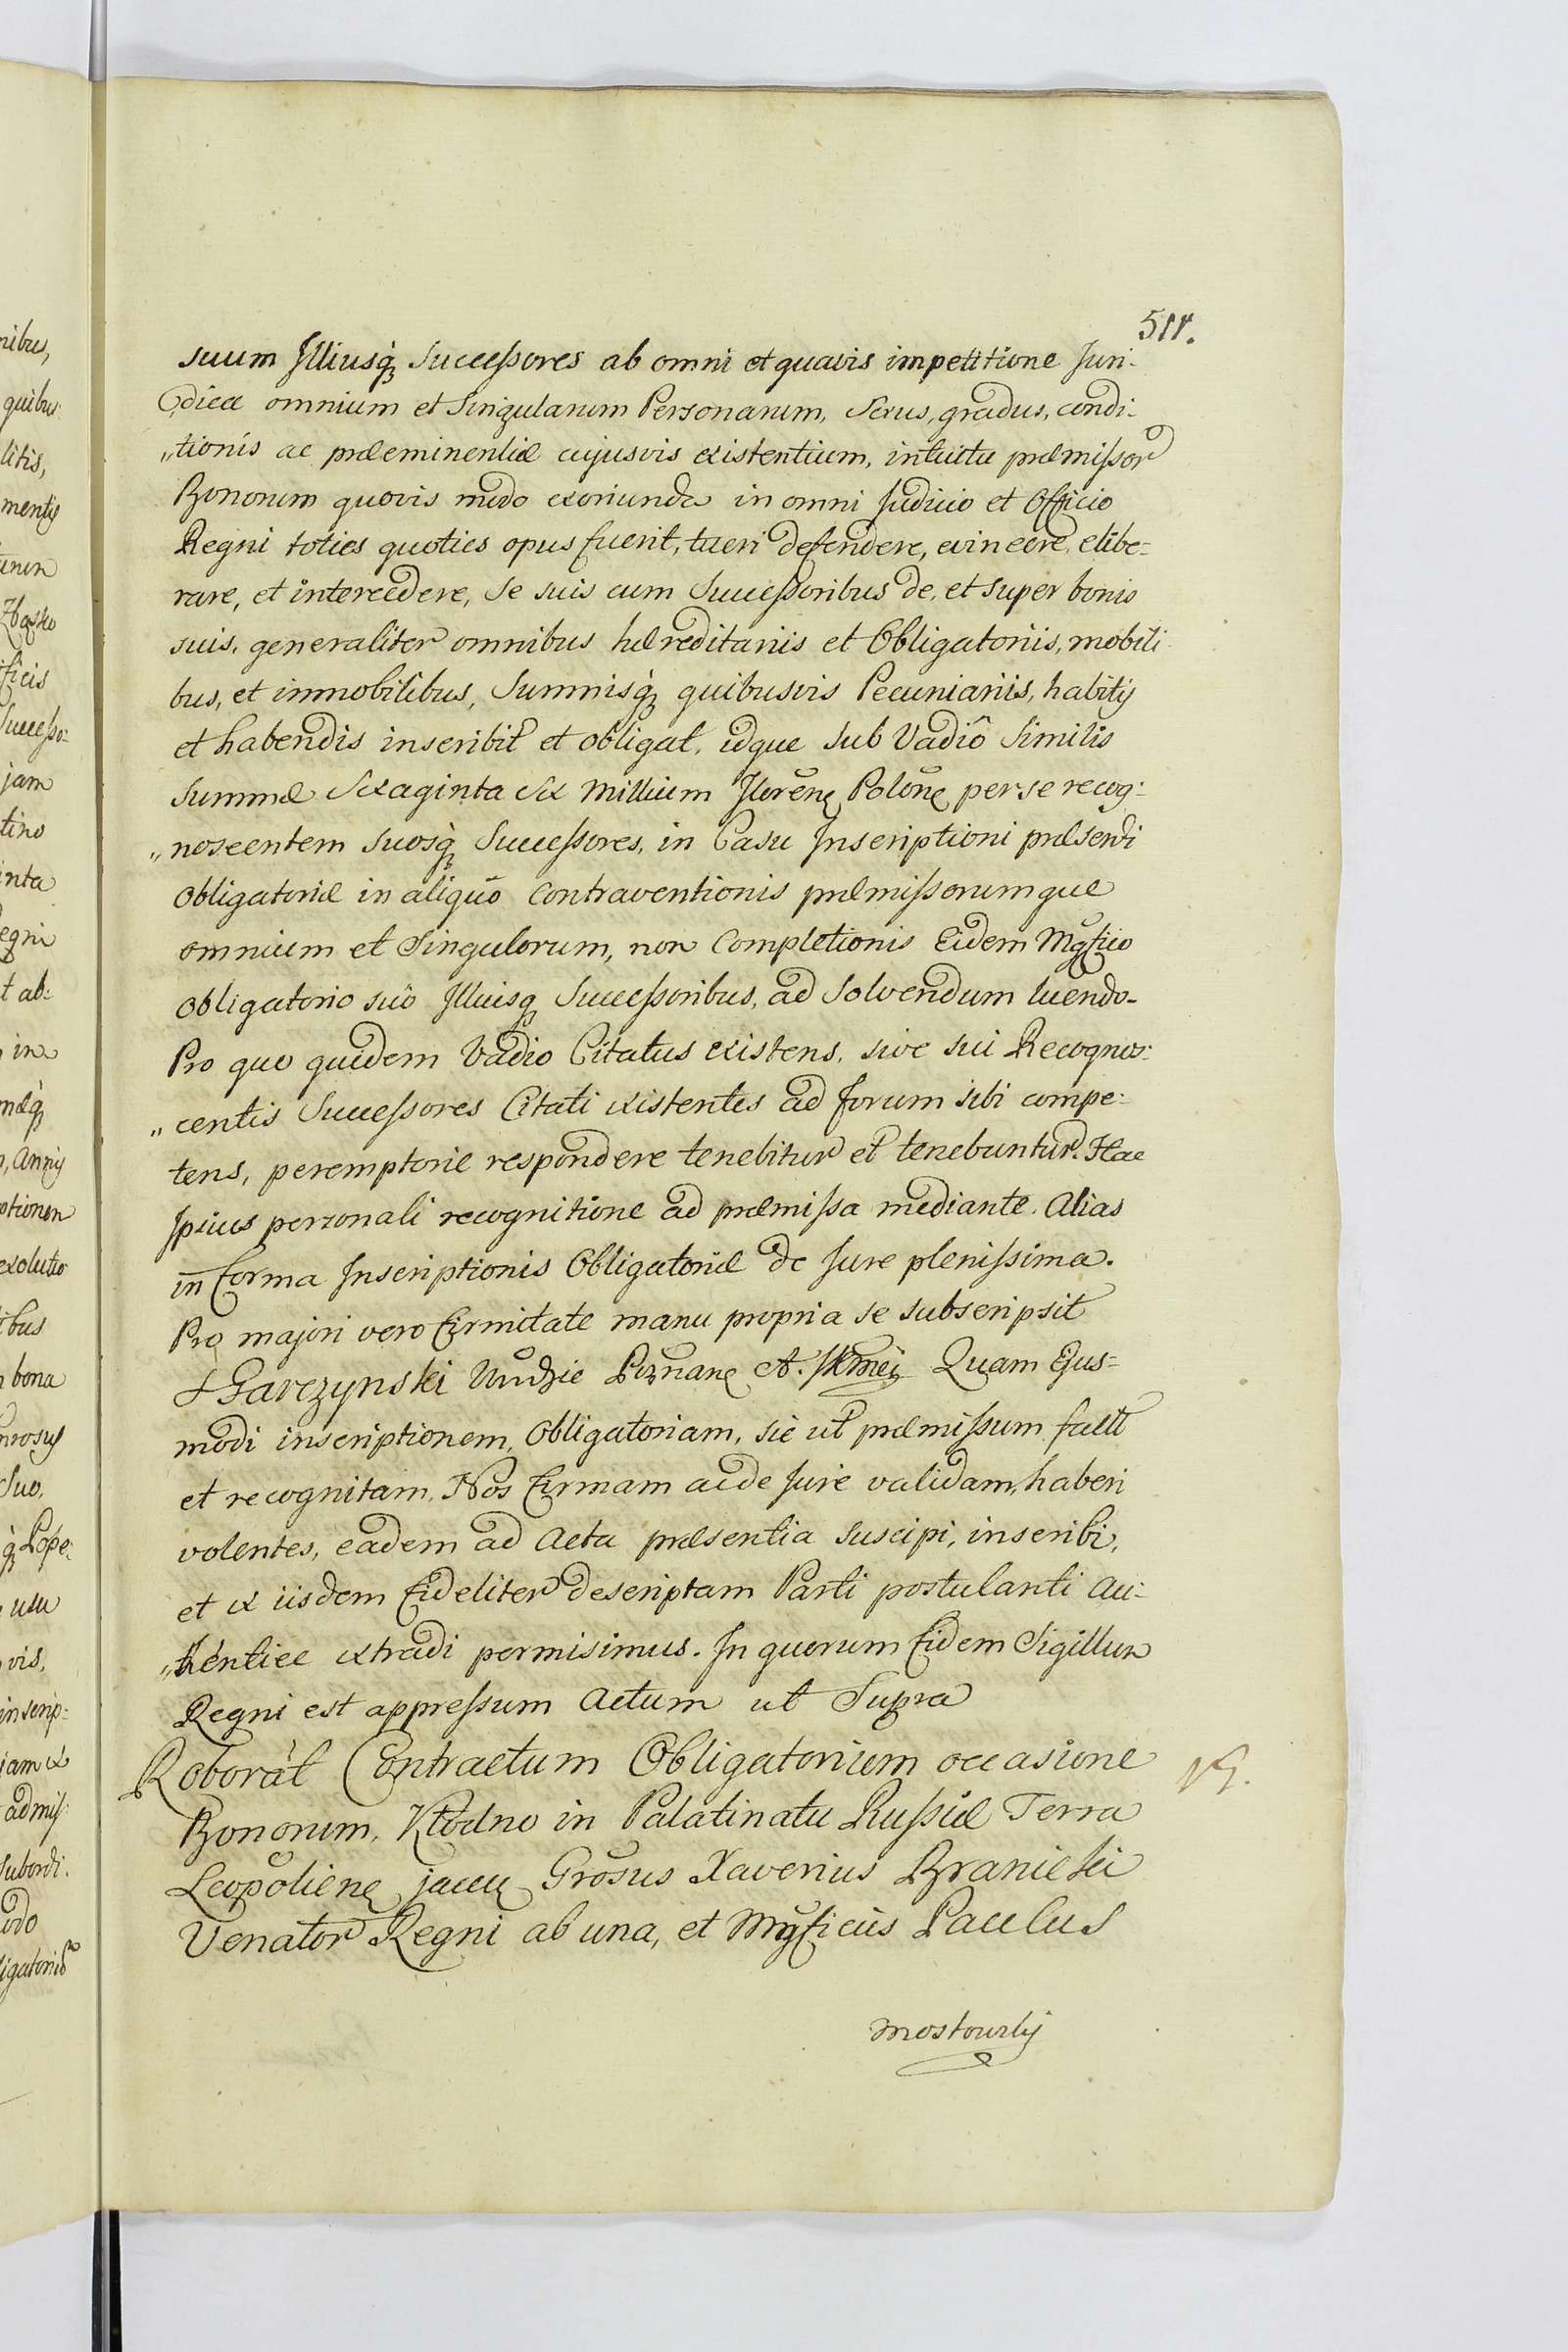 511.
suum Illiusq́ Successores ab omni et quavis impetitione Juri-
dica omnium et Singularum Personarum, Sexus, gradus, condi-
„tionis ac præeminentiæ cujusvis existentium, intuitu præmissor
Bonorum quovis modo exoriunda in omni Judicio et Officio
Regni toties quoties opus fuerit, tueri defendere, evincere, elibe-
rare, et intercedere, se suis cum Successoribus de, et super bonis
suis, generaliter omnibus hæreditariis et Obligatoriis, mobili
bus, et immobilibus, Summisq́ quibusvis Pecuniariis, habitis
et habendis inscribit et obligat, idque sub Vadiô Similis
Summæ Sexaginta Sex Millium Floren Polon per se recog-
„noscentem Suosq́ Successores, in Casu Inscriptioni præsenti
obligatoriæ in aliquo Contraventionis præmissorumque
omnium et Singulorum, non Completionis Eidem Mgfico
obligatorio suo Illiusq Successoribus, ad Solvendum luendo-
Pro quo quidem Vadio Citatus existens, sive sui Recognos-
„centis Successores Citati existentes ad forum sibi compe-
tens, peremptorie respondere tenebitur et tenebuntur. Hac
Ipsius personali recognitione ad præmissa mediante. Alias
in forma Inscriptionis Obligatoriæ de Jure plenissima.
Pro majori vero firmitate manu propria se subscripsit
Garczynski Quam Ejus-
modi inscriptionem, Obligatoriam, sic ut præmissum
et recognitam, Nos firmam ac de Jure validam, haberi
volentes, eadem ad Acta præsentia suscipi, inscribi,
et ex iisdem fideliter descriptam Parti postulanti au-
„thentice extradi permisimus. In quorum fidem Sigillum
Regni est appressum Actum ut Supra
Roborat Contractum Obligatorium occasione
Bonorum, Kłodno in Palatinatu Russiæ Terra
Leopolien jacen Grosus Xaverius Branicki
Venator Regni ab una, et Mgficus Paulus
Mostowski